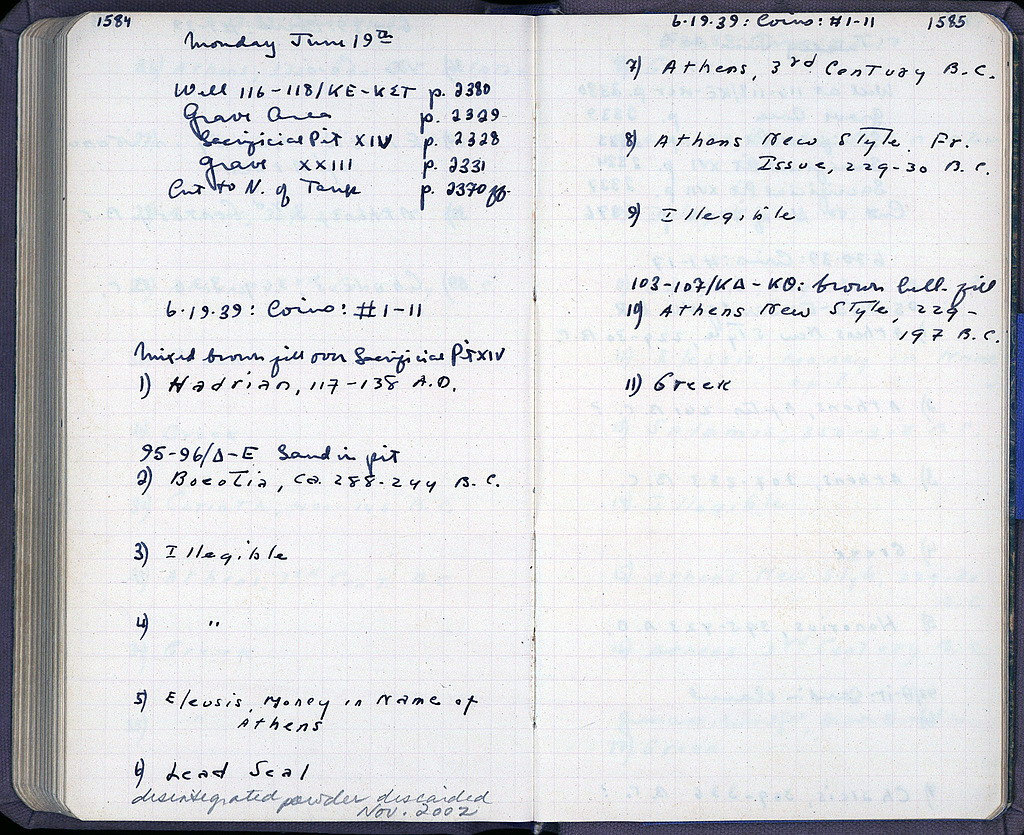 1584
Monday June 19th
Well 116-118/KE-KΣT p. 2380
Grave Area p. 2329
Sacrificial Pit XIV p. 2328
Grave XXIII p. 2331
Cut to N. of Tank p. 2370 ff.
6.19.39: Coins: #1-11
Mixed brown fill over Sacrificial Pit XIV
1) Hadrian, 117-138 A.D.
95-96/Δ-E Sand in pit
2) Boeotia, ca. 288-244 B.C.
3) Illegible
4) "
5) Eleusis, Money in Name of
Athens
6) Lead Seal
disintegrated powder discarded
Nov. 2002
6.19.39: Coins: #1-11 1585
7) Athens, 3rd Century B.C.
8) Athens New Style, Fr.
Issue, 229-30 B.C.
9) Illegible
103-107/KΔ-KΘ: brown bell. fill
10) Athens New Style, 229-
197 B.C.
11) Greek